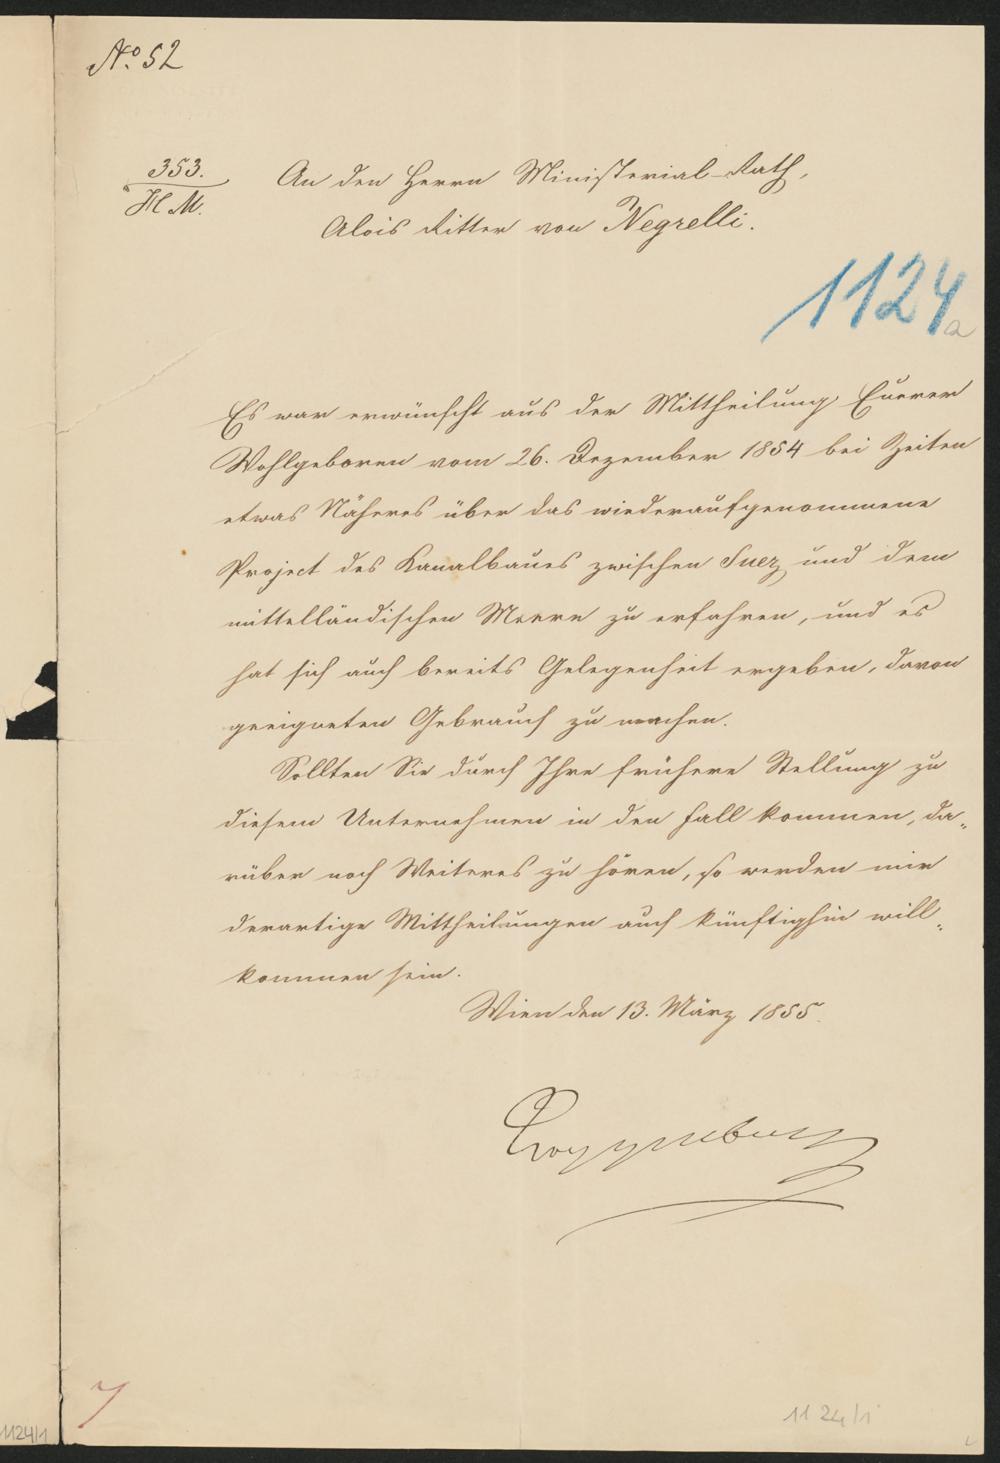 No. 52
353.
H. M.
An den Herrn Ministerial-Rath,
Alois Ritter von Negrelli.
1124
a
Es war erwünscht aus der Mittheilung Euerer
Wohlgeboren vom 26. Dezember 1854 bei Zeiten
etwas Näheres über das wiederaufgenommene
Project des Kanalbaues zwischen Suez und dem
mittelländischen Meere zu erfahren, und es
hat sich auch bereits Gelegenheit ergeben, davon
geeigneten Gebrauch zu machen.
Sollten Sie durch Ihre frühere Stellung zu
diesem Unternehmen in den Fall kommen, da„
rüber noch Weiteres zu hören, so werden mir
derartige Mittheilungen auch künftighin will„
kommen sein.
Wien den 13. März 1855.
Toggenburg
7
1124/1
1124/1